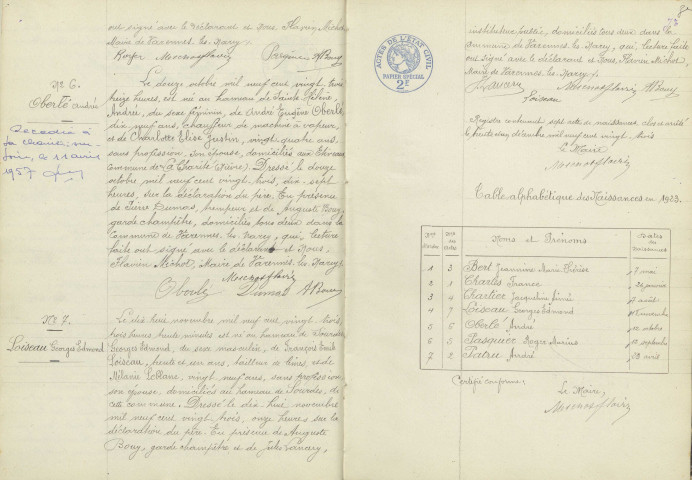 ont signé avec le déclarant et Nous, Flavin Michot
Maire de Varennes-les-Narcy.
No 6.
Oberlé André
Décédée à
la Charité-sur-
Loire, le 11 avril
1957
Le douze octobre mil neuf cent vingt trois
treize heures, est né au hameau de Sainte Hélène,
André, du sexe féminin, de André Eugène Oberlé,
dix ans, chauffeur de machine à vapeur
et de Charlotte Elise Justin, vingt quatre ans,
sans profession, son épouse, domiciliés aux
commune de La Charité (Nièvre). Dressé le douze
octobre mil neuf cent vingt trois, dix-sept
heures, sur la déclaration du père. En présence
de Pierre Dumas, trempeur et de Auguste Bouy,
garde champêtre, domiciliés tous deux dans la
Commune de Varennes-les-Narcy, qui, lecture
faite ont signé avec le déclarant et Nous,
Flavin Michot, Maire de Varennes-les-Narcy
Oberlé Dumas ABouy
No 7.
Loiseau Georges Edmond
Le dix huit novembre mil neuf cent vingt trois,
trois heures trente minutes est né au hameau de
Georges Edmond, du sexe masculin, de François Emile
Loiseau, trente et un ans, tailleur de limes, et de
Mélanie Leblanc, vingt neuf ans, sans profession,
son épouse, domiciliés au hameau de
cette commune. Dressé le dix-huit novembre
mil neuf cent vingt trois, onze heures sur la
déclaration du père. En présence de Auguste
Bouy, garde champêtre et de Jules
ACTES DE L'ÉTAT CIVIL
PAPIER SPÉCIAL
2F
instituteur public, domiciliés tous deux dans la
commune de Varennes-les-Narcy, qui, lecture faite
ont signé avec le déclarant et Nous, Flavien Michot,
Maire de Varennes-les-Narcy.
ABouy
Loiseau
Registre contenant sept actes de naissances, clos et arrêté
le trente un décembre mil neuf cent vingt trois
Le Maire
Table alphabétique des Naissances en 1923.
Nos d'ordre Nos des actes Noms et Prénoms Dates des Naissances
1 3 Bort Jeannine Marie Thérèse 7 mai
2 1 Charles France 24 janvier
3 4 Chartier Jacqueline 7 août
4 7 Loiseau Georges Edmond 18 novembre
5 6 Oberlé André 12 octobre
6 5 Pasquier Roger Marius septembre
7 2 André avril
Certifié conforme;
Le Maire,